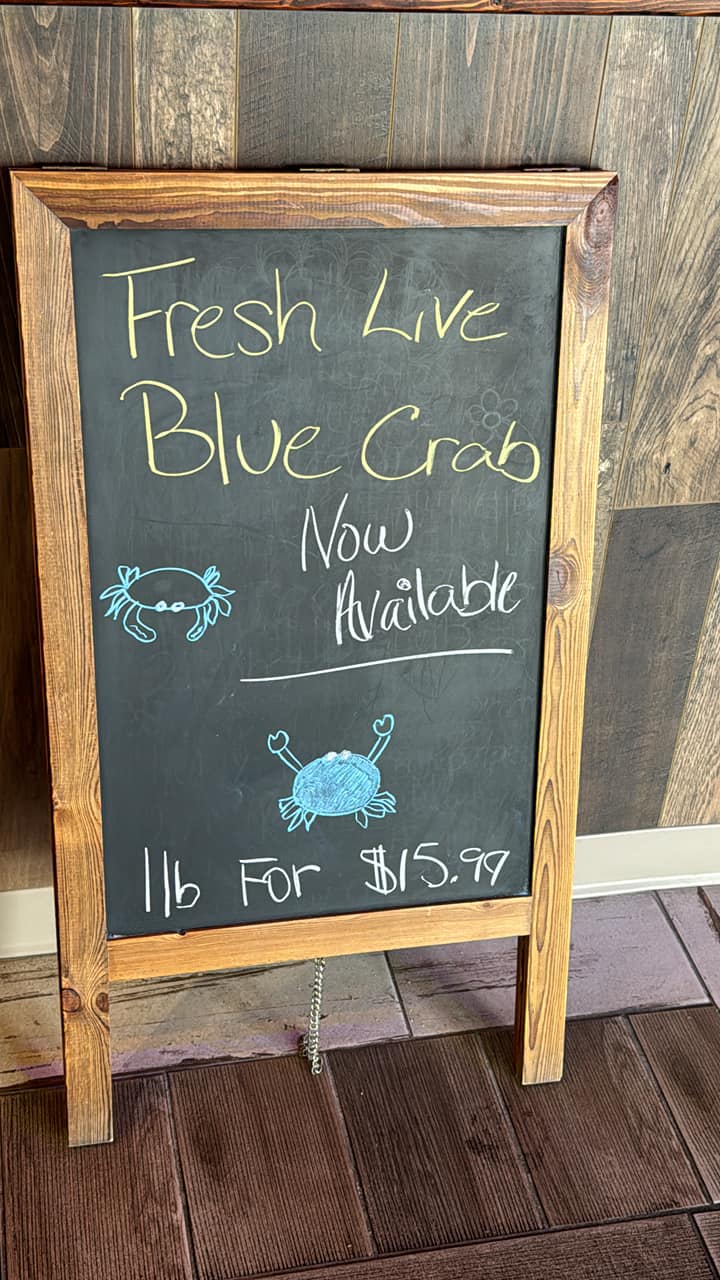 Fresh Live
Blue Crab
Now
Available
1lb For $15.99